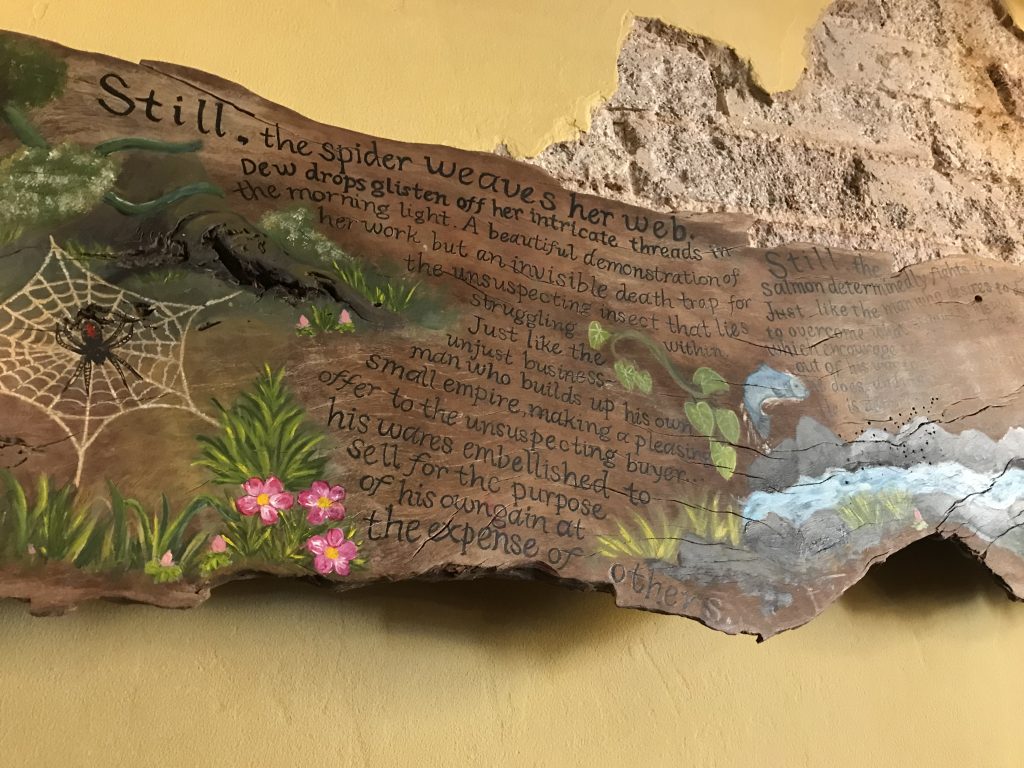 Still. the spider weaves her web.
Dew drops glisten off her intricate threads in
the morning light. A beautiful demonstration of
her work but an invisible death trap for
the unsuspecting insect that lies
struggling within.
Just like the
unjust business-
man who builds up his own
small empire, making a pleasing
offer to the unsuspecting buyer...
his wares embellished to
sell for the purpose
of his own gain at
the expense of
others
Still the
salmon determinedly fights
Just like the man who desires to
to overcome
which encourage
out of his